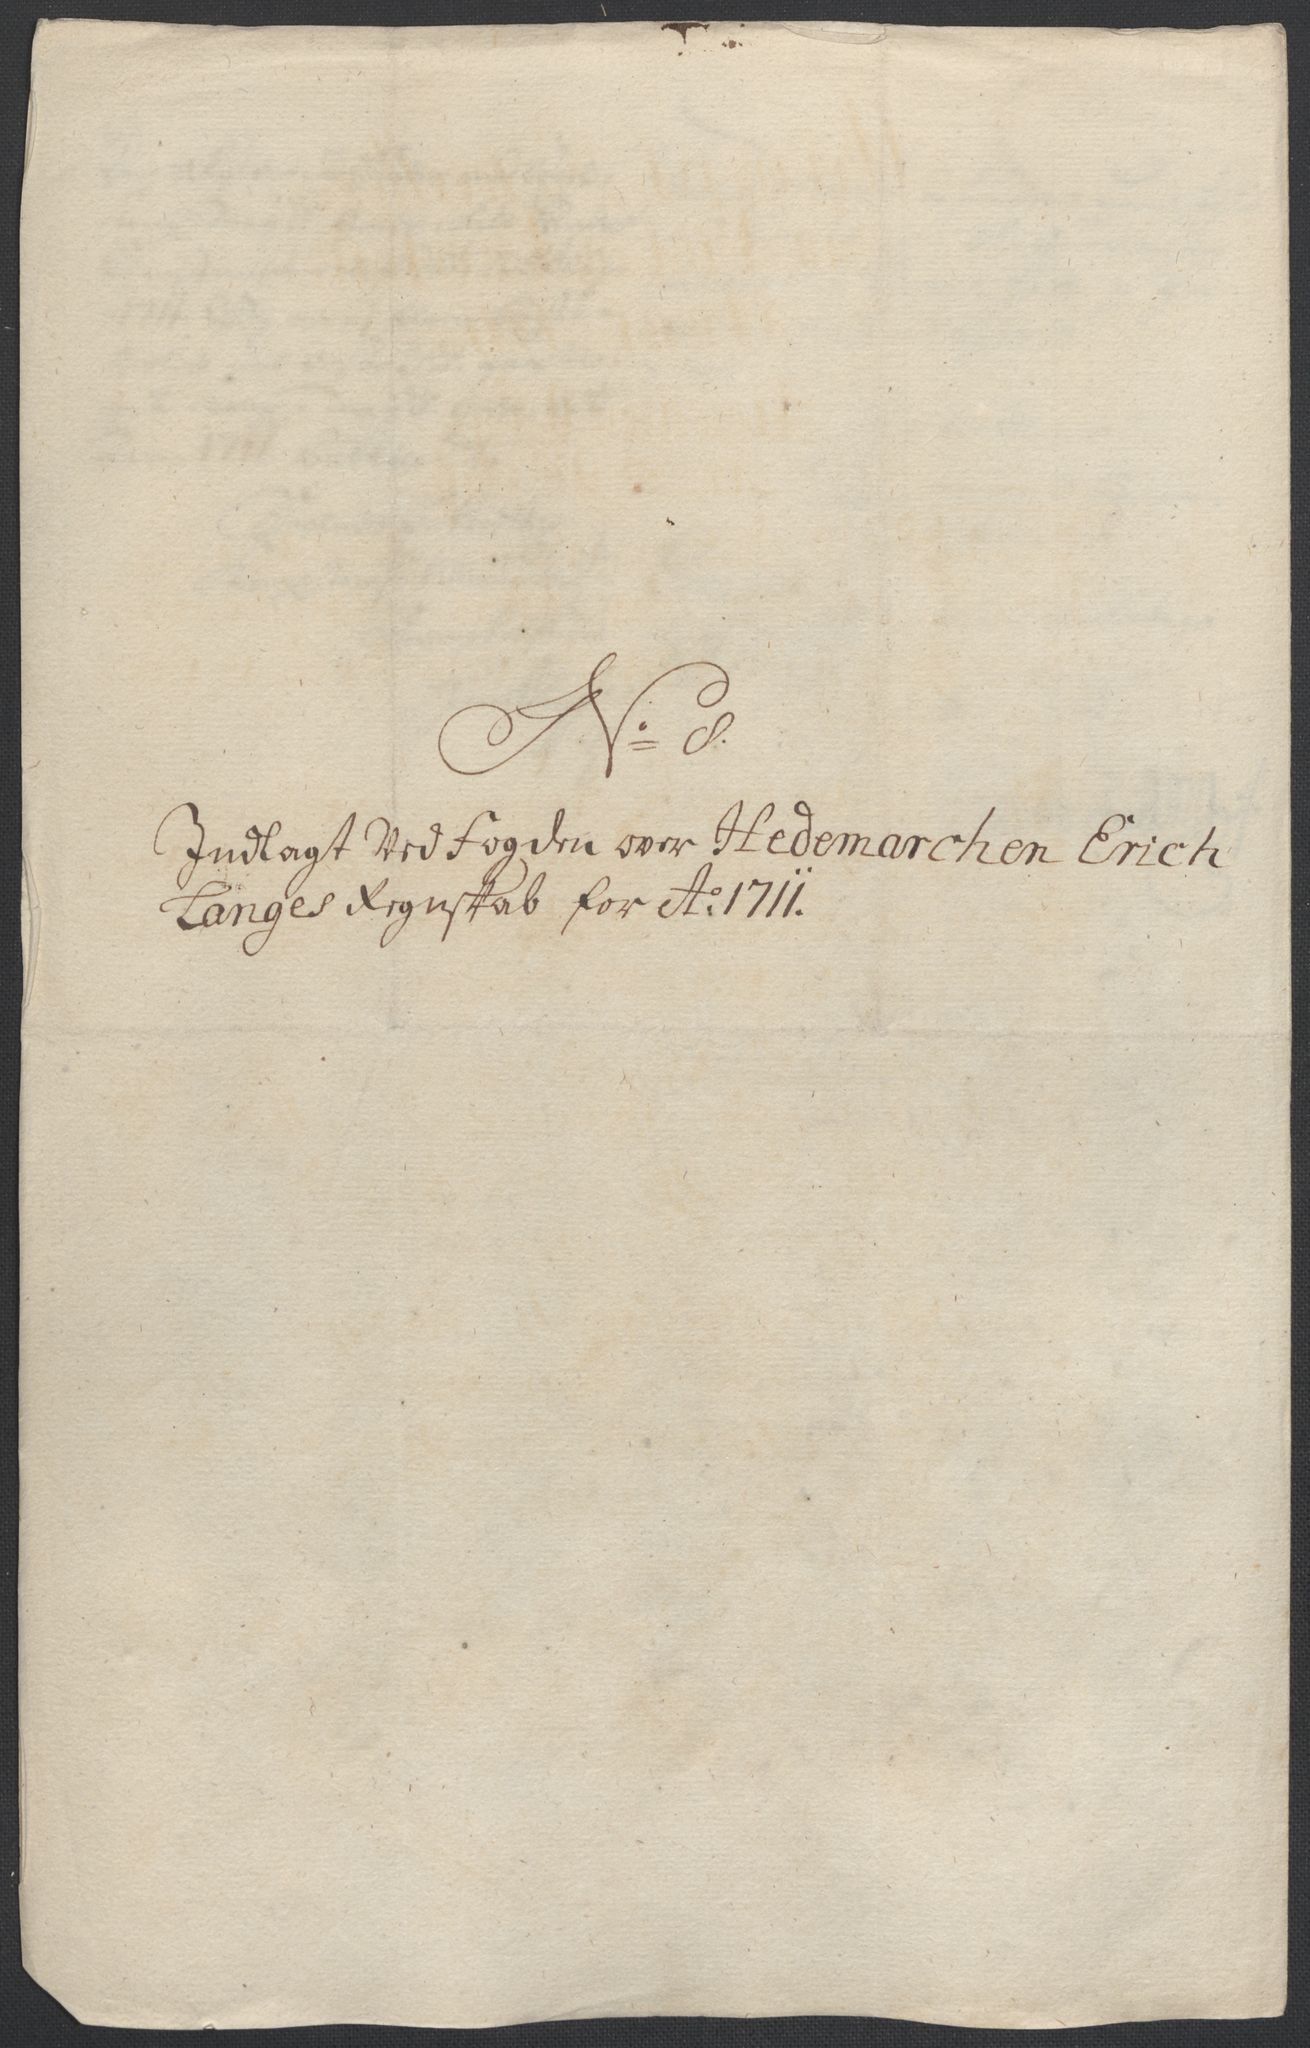 No. 8.
Indlagt Ved Fogden over Hedemarchen Erich
Langes Regnskab for Ao: 1711.